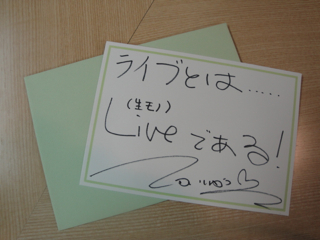 ライブとは.....
(生モノ)
Liveである!